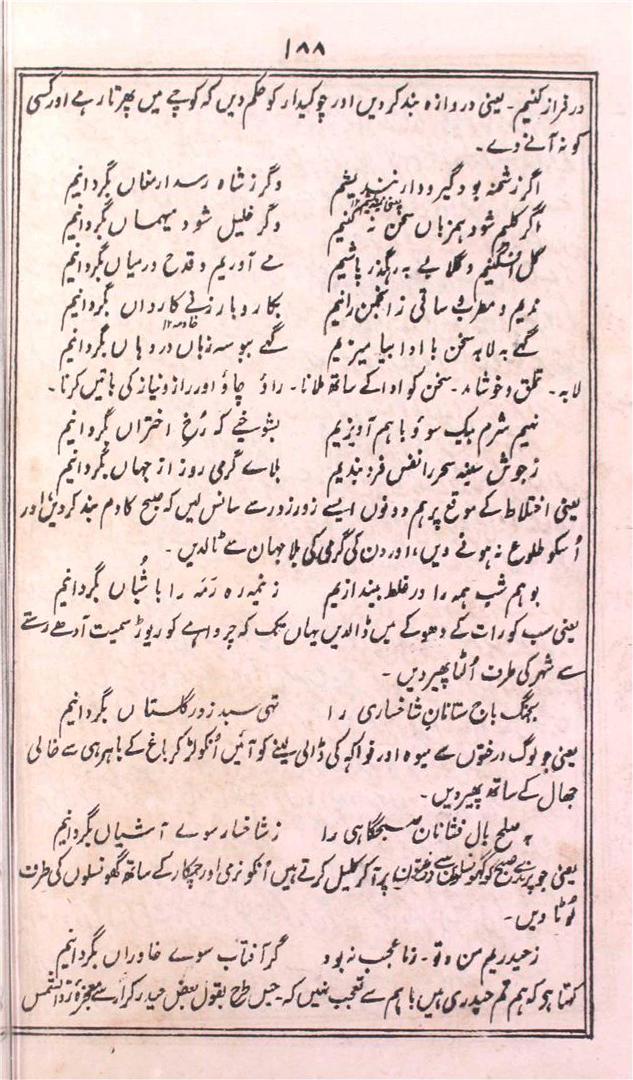 ۱۸۸
در فراز کنیم۔ یعنی دروازہ بند کردیں اور چوکیدار کو حکم دیں کہ کوچے میں پھرتا رہے اور کسی
کو نہ آنے دے۔
اگر ز شحنہ بود گیر و دار نندیشیم وگر ز شاہ رسد ارمغاں بگردانیم
اگر کلیم شود ہمزباں سخن نہ کنیم وگر خلیل شود میہماں بگردانیم
گل افگنیم و گلابے بہ رہگذر پاشیم مے آوریم و قدح درمیاں بگردانیم
ندیم و مطرب و ساقی ز انجمن رانیم بکار و بار زنے کارداں بگردانیم
گہے بہ لابہ سخن با ادا بیامیزیم گہے ببوسہ زباں در دہاں بگردانیم
لابہ۔ تملق و خوشامد۔ سخن کو ادا کے ساتھ ملانا۔ راؤ چاؤ اور راز و نیاز کی باتیں کرنا۔
نہیم شرم بیک سو و باہم آویزیم بشوخیے کہ رُخ اختراں بگردانیم
ز جوش سینہ سحر را نفس فرو بندیم بلاے گرمی روز از جہاں بگردانیم
یعنی اختلاط کے موقع پر ہم دونوں ایسے زور زور سے سانس لیں کہ صبح کا دم بند کردیں، اور
اُسکو طلوع نہ ہونے دیں، اور دن کی گرمی کی بلا جہان سے ٹالدیں۔
بوہم شب ہمہ را در غلط بیندازیم ز نیمہ رہ رمہ را با شُباں بگردانیم
یعنی سب کو رات کے دھوکے میں ڈالدیں یہاں تک کہ چرواہے کو ریوڑ سمیت آدھے رستے
سے شہر کی طرف اُلٹا پھیر دیں۔
بجنگ باج ستانان شاخساری را تہی سبد ز در گلستاں بگردانیم
یعنی جو لوگ درختوں سے میوہ اور فواکہ کی ڈالی لینے کو آئیں اُنکو لڑ کر باغ کے باہر ہی سے خالی
جھال کے ساتھ پھیر دیں۔
بہ صلح بال فشانان صبحگاہی را ز شاخسار سوے آشیاں بگردانیم
یعنی جو پرندے صبح کو گھونسلوں سے درختوں پر آکر کلیل کرتے ہیں اُنکو نرمی اور چمکار کے ساتھ گھونسلوں کی طرف
لوٹا دیں۔
ز حیدریم من و تو۔ ز ما عجب نبود گر آفتاب سوے خاوراں بگردانیم
کہتا ہو کہ ہم تم حیدری ہیں باہم سے تعجب نہیں کہ جس طرح بقول بعض حیدر کرار سے معجزۂ رد الشمس